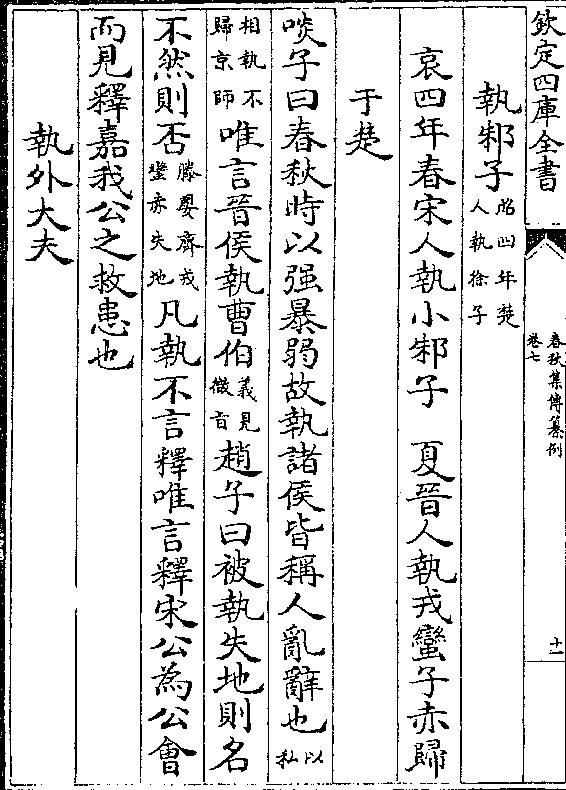 欽定四庫全書
春秋集傳纂例
卷七
十一
執邾子昭四年楚人執徐子
哀四年春宋人執小邾子　夏晉人執戎蠻子赤歸
于楚
啖子曰春秋時以强暴弱故執諸侯皆稱人亂辭也以私
相執不歸京師唯言晉侯執曹伯義見微旨趙子曰被執失地則名
不然則否滕嬰齊戎蠻赤失地凡執不言釋唯言釋宋公為公會
而見釋嘉我公之救患也
執外大夫